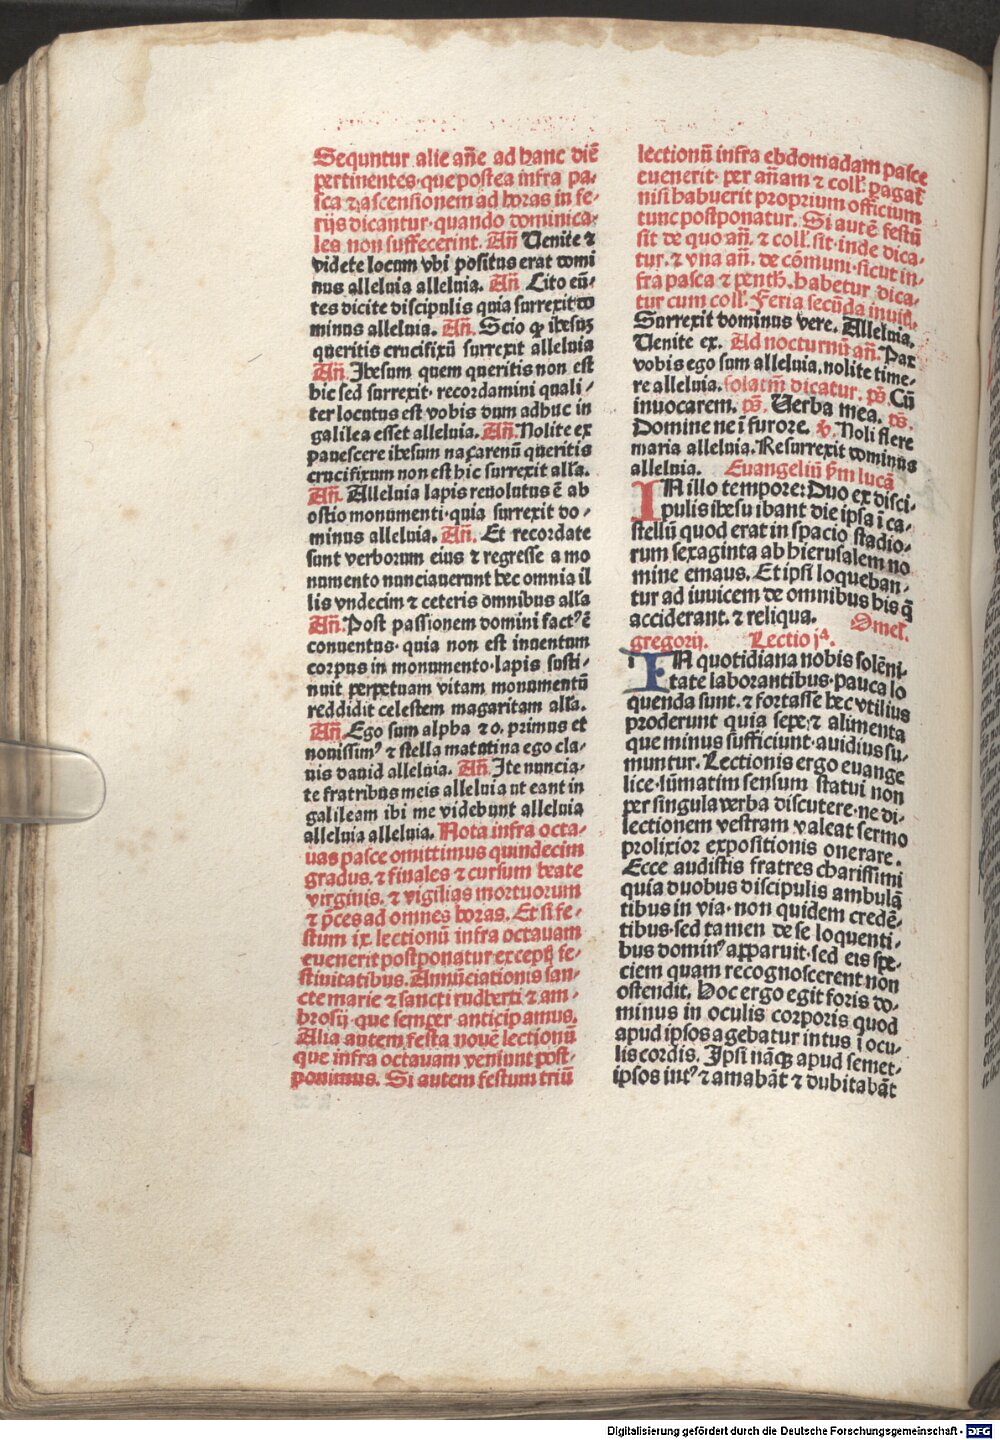 Sequntur alie an̄e ad hanc diē
pertinentes·que postea infra pa⸗
sca ⁊ ascensionem ad horas in fe⸗
rijs dicantur·quando dominica⸗
les non suffecerint. An̄ Uenite ⁊
videte locum vbi positus erat domi
nus alleluia alleluia. An̄ Cito eū⸗
tes dicite discipulis quia surrexit do
minus alleluia. An̄. Scio ꝙ ihesuȝ
queritis crucifixū surrexit alleluia
An̄. Ihesum quem queritis non est
hic sed surrexit· recordamini quali⸗
ter locutus est vobis dum adhuc in
galilea esset alleluia. An̄. Nolite ex
pauescere ihesum naçarenū queritis
crucifixum non est hic surrexit alľa.
An̄. Alleluia lapis reuolutus ē ab
ostio monumenti·quia surrexit do⸗
minus alleluia. An̄. Et recordate
sunt verborum eius ⁊ regresse a mo
numento nunciauerunt hec omnia il
lis vndecim ⁊ ceteris omnibus alľa
An̄. Post passionem domini factꝰ ē
conuentus· quia non est inuentum
corpus in monumento·lapis susti⸗
nuit perpetuam vitam monumentū
reddidit celestem magaritam alľa.
An̄. Ego sum alpha ⁊ o. primus et
nouissimꝰ ⁊ stella matutina ego cla⸗
uis dauid alleluia. An̄. Ite nuncia⸗
te fratribus meis alleluia ut eant in
galileam ibi me videbunt alleluia
alleluia alleluia. Nota infra octa⸗
uas pasce omittimus quindecim
gradus. ⁊ finales ⁊ cursum beate
virginis. ⁊ vigilias mortuorum
⁊ p̄ces ad omnes horas. Et si fe⸗
stum ix lectionū infra octauam
euenerit postponatur except̄ fe⸗
stiuitatibus. Annūciationis san⸗
cte marie ⁊ sancti rudberti ⁊ am⸗
brosij·que semper anticipamus.
Alia autem festa nouē lectionū
que infra octauam veniunt post⸗
ponimus. Si autem festum triū
lectionū infra ebdomadam pasce
euenerit· per an̄am ⁊ coll̄. pagat̄
nisi habuerit proprium officium
tunc postponatur. Si autē festū
sit de quo an̄. ⁊ coll̄. sit·inde dica⸗
tur. ⁊ vna an̄. de cōmuni·sicut in⸗
fra pasca ⁊ penth̄. habetur dica⸗
tur cum coll̄. Feria secūda inuid̄.
Surrexit dominus vere. Alleluia.
Uenite ex. Ad nocturnū an̄. Pax
vobis ego sum alleluia. nolite time⸗
re alleluia. solatm̄ dicatur. ps̄. Cū
inuocarem. ps̄. Uerba mea. ps̄.
Domine ne ī furore. v̄. Noli flere
maria alleluia. Resurrexit dominus
alleluia. Euangeliū s̄m lucā
IN illo tempore: Duo ex disci⸗
pulis ihesu ibant die ipsa ī ca⸗
stellū quod erat in spacio stadio⸗
rum sexaginta ab hierusalem no
mine emaus. Et ipsi loqueban⸗
tur ad inuicem de omnibus his q̄
acciderant. ⁊ reliqua. Omel̄.
gregorij. Lectio jᵃ.
IN quotidiana nobis solēni⸗
tate laborantibus·pauca lo
quenda sunt. ⁊ fortasse hec vtilius
proderunt quia sepe ⁊ alimenta
que minus sufficiunt·auidius su⸗
muntur. Lectionis ergo euange
lice·sūmatim sensum statui non
per singula verba discutere·ne di⸗
lectionem vestram valeat sermo
prolixior expositionis onerare.
Ecce audistis fratres charissimi
quia duobus discipulis ambulā
tibus in via· non quidem credē⸗
tibus·sed tamen de se loquenti⸗
bus dominꝰ apparuit·sed eis spe⸗
ciem quam recognoscerent non
ostendit. Hoc ergo egit foris do⸗
minus in oculis corporis quod
apud ipsos agebatur intus ī ocu⸗
lis cordis. Ipsi nāqꝫ apud semet⸗
ipsos intꝰ ⁊ amabāt ⁊ dubitabāt
Digitalisierung gefördert durch die Deutsche Forschungsgemeinschaft - DFG